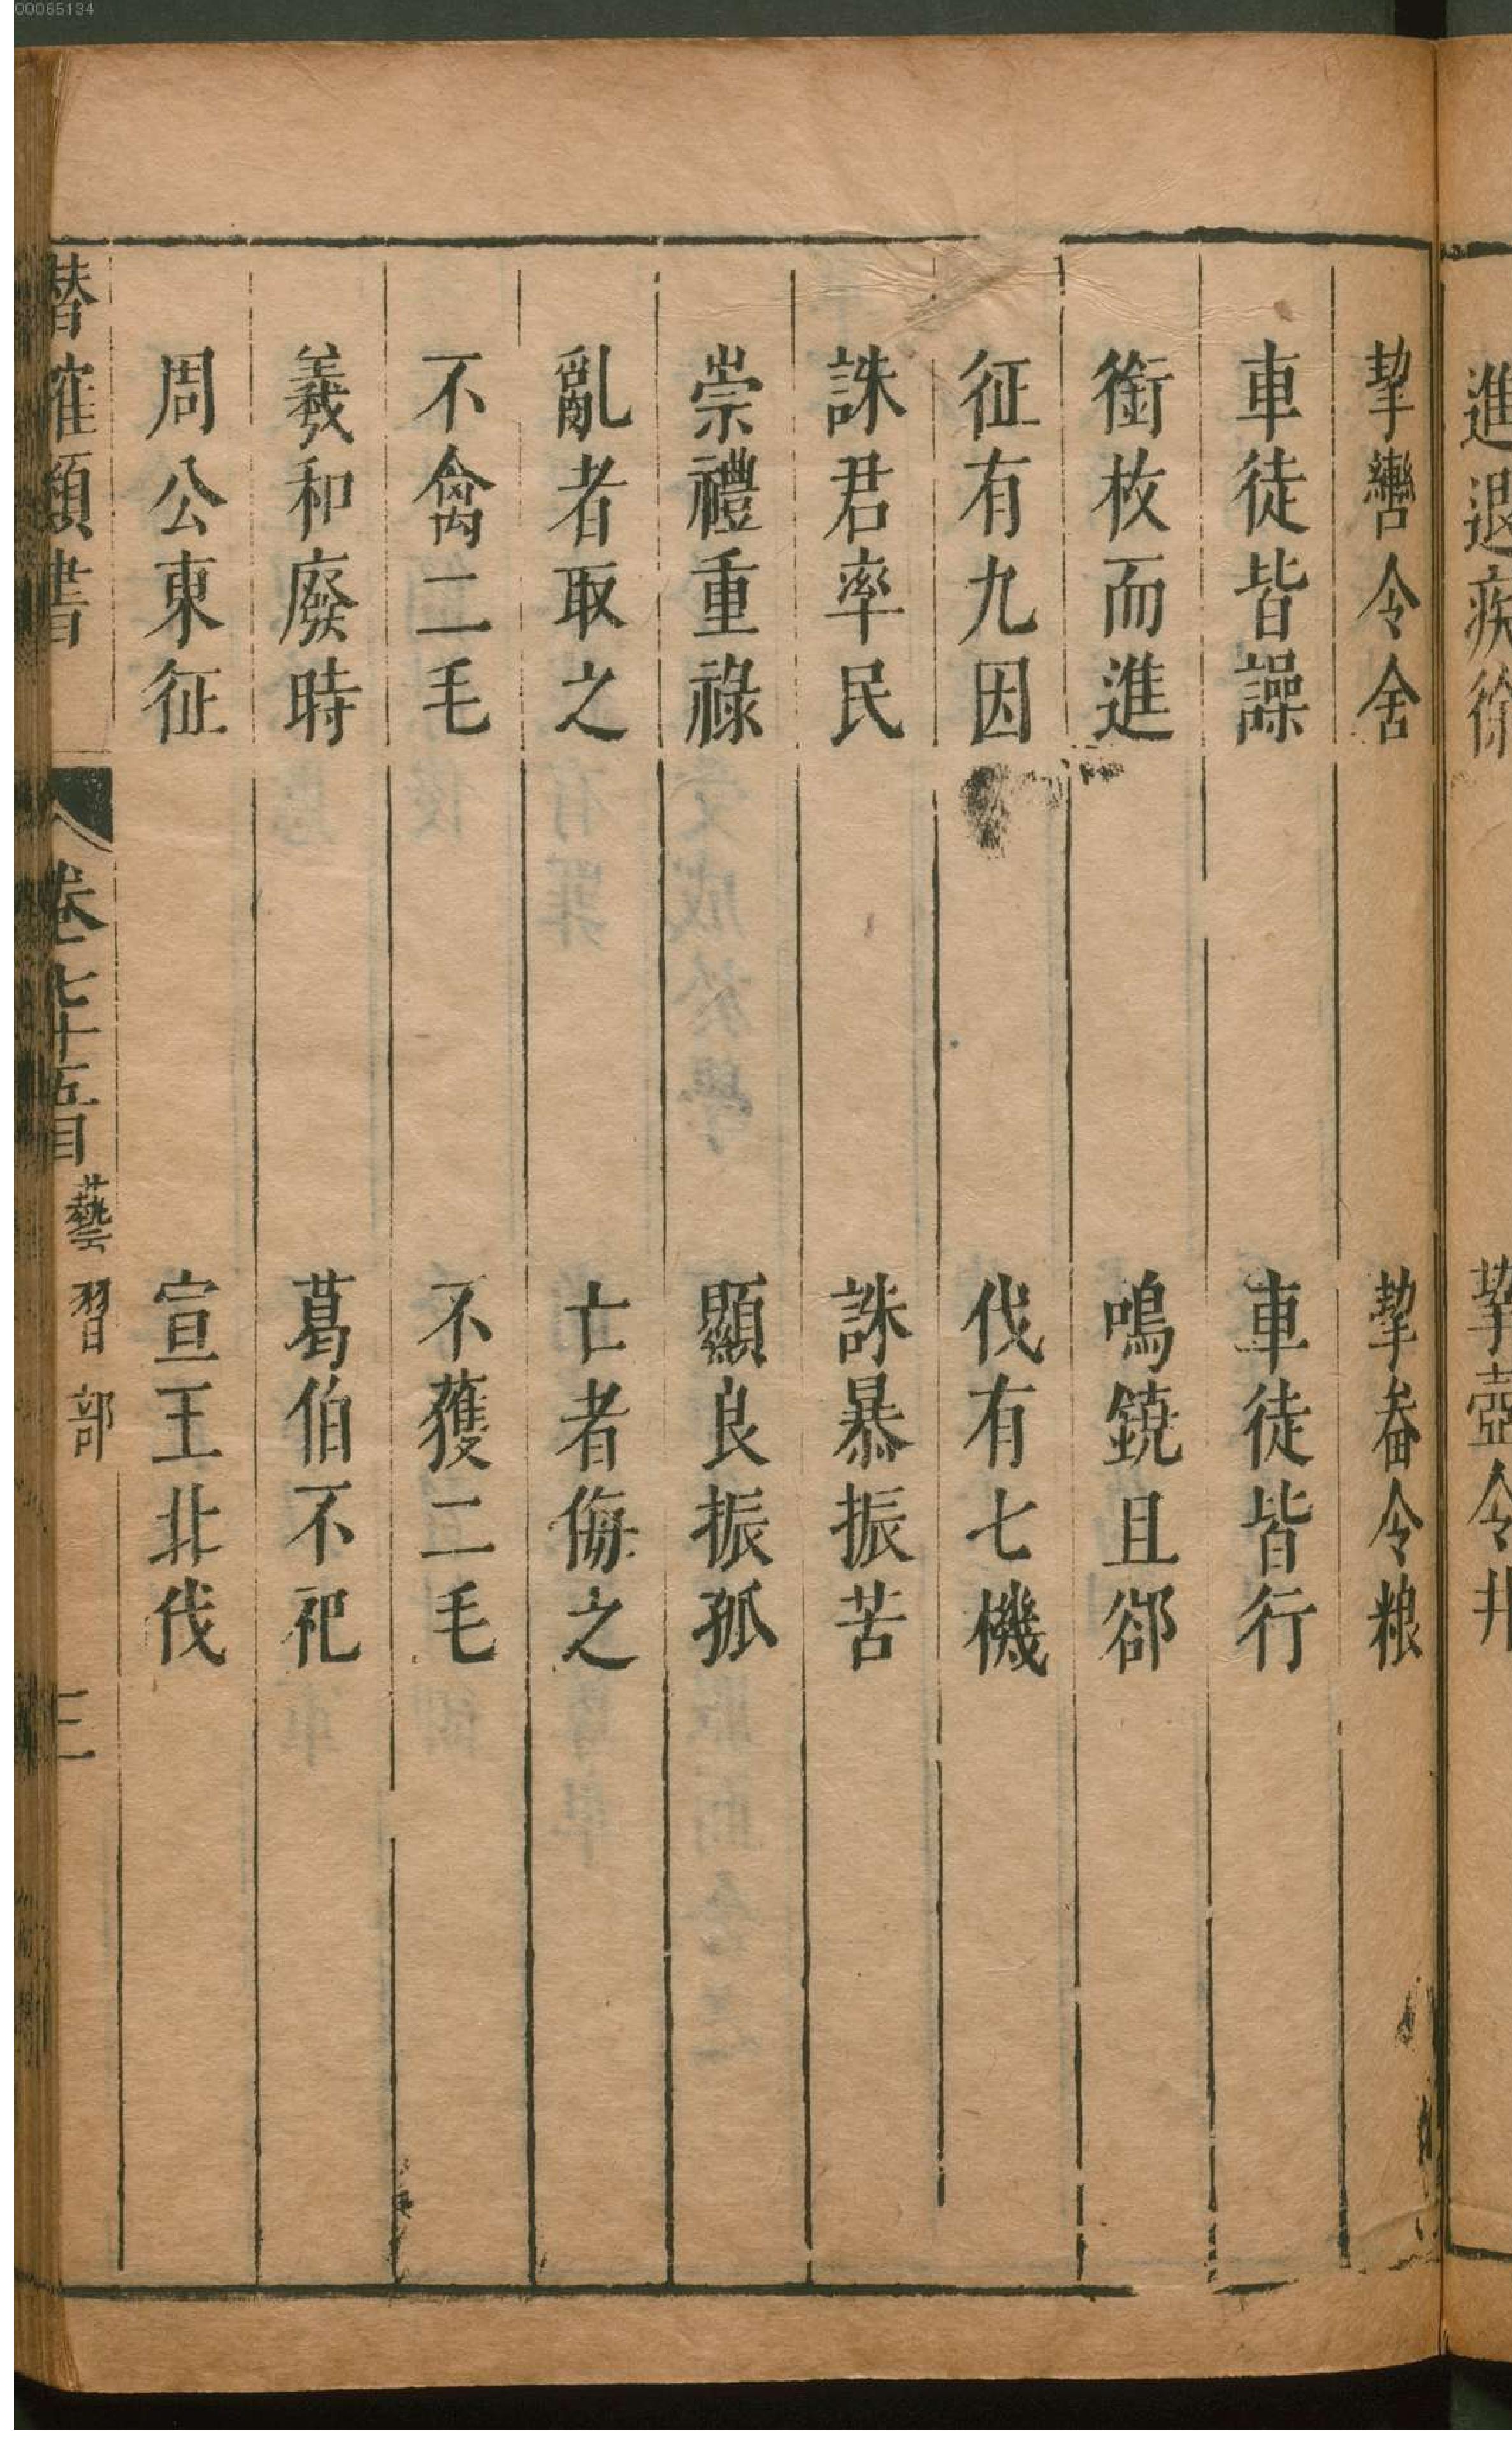 00065134
進退疾徐
挈壺令井
挈轡令舍
挈畚令粮
車徒皆譟
車徒皆行
銜枚而進
鳴鐃且郤
征有九因
伐有七機
誅君率民
誅暴振苦
崇禮重祿
顯良振孤
亂者取之
亡者侮之
不禽二毛
不獲二毛
羲和廢時
葛伯不祀
周公東征
宣王北伐
潛確類書
卷七十五目
藝習部
三